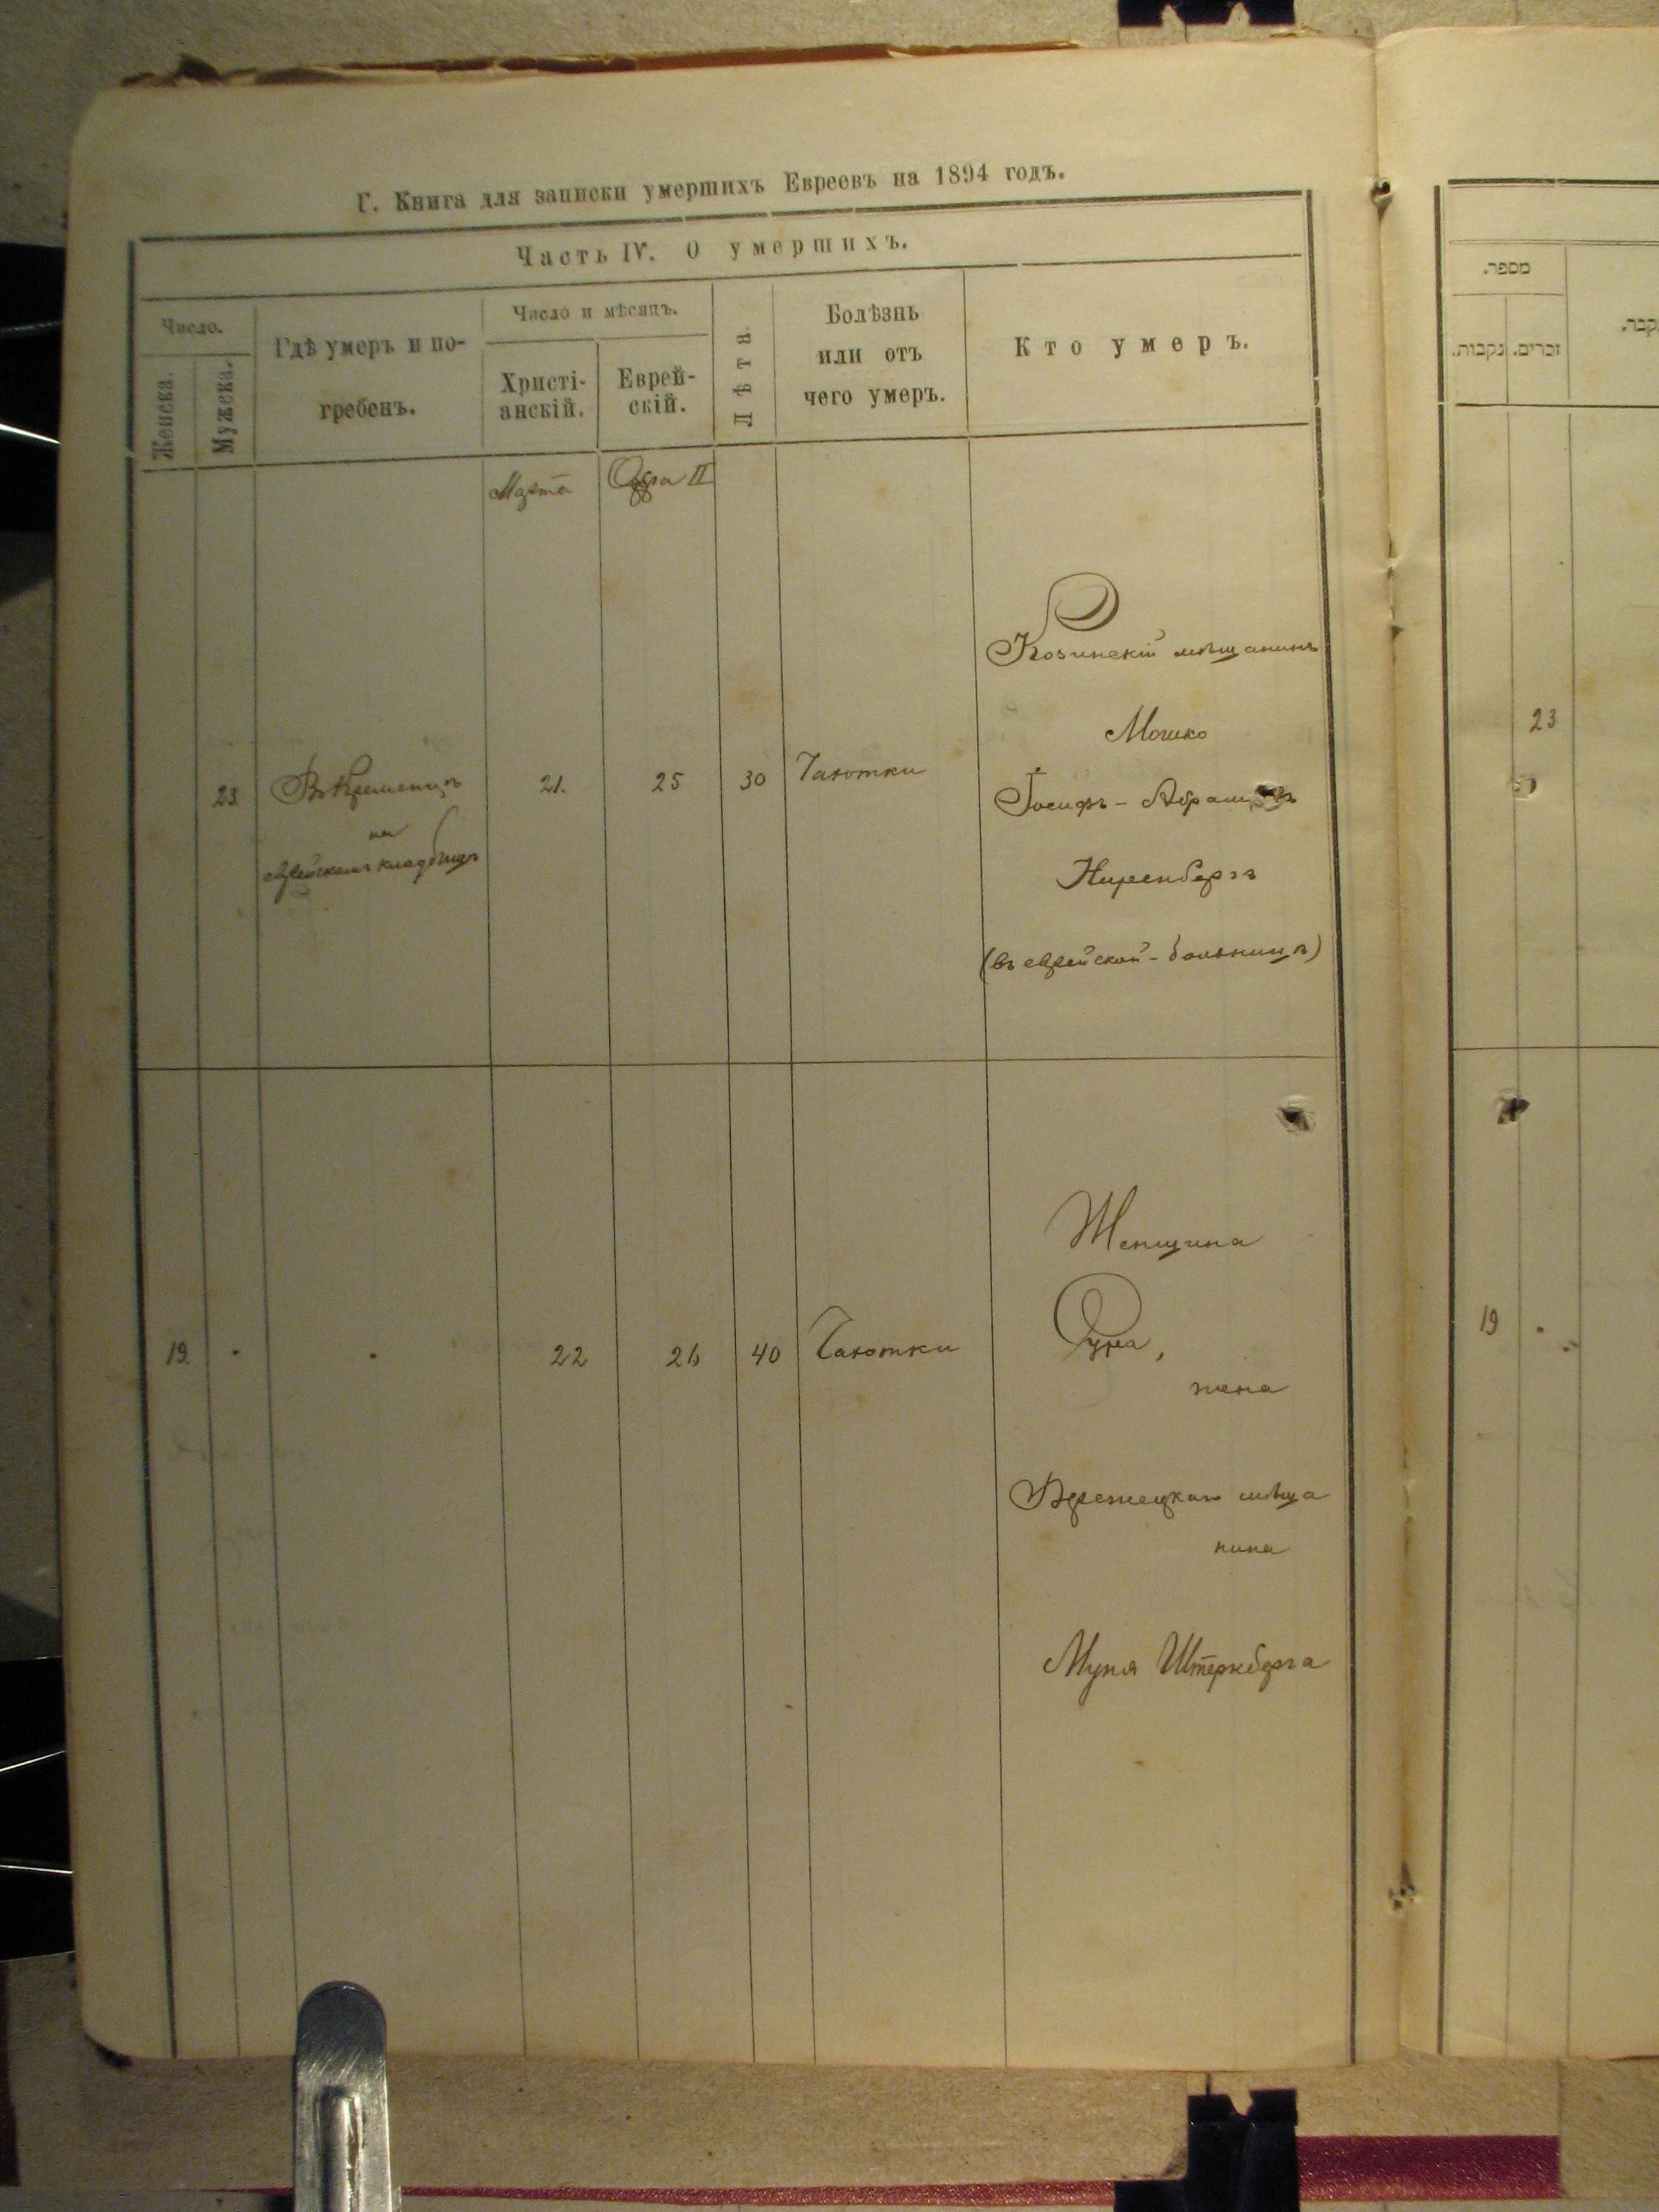 Г. Книга для записки умершихъ Евреевъ на 1894 годъ.
Часть IV. О умершихъ.
Число.
Женска.
Мужска.
Гдѣ умеръ и по-
гребенъ.
Число и мѣсяцъ.
Христі-
анскій.
Еврей-
скій.
Лѣта.
Болѣзнь
или отъ
чего умеръ.
Кто умеръ.
Марта
Адра II
23.
Въ Кременцѣ
на
еврейскомъ кладбищѣ
21.
25
30
Чахотки
Козинскій мѣщанинъ
Мошко
Іосифъ-
Ниренбергъ
(въ еврейской-больницѣ)
19.
22
26
40
Чахотки
Женщина
жена
мѣща
нина
Муня Штернберга
מספר.
נקבות.
זכרים.
23
19